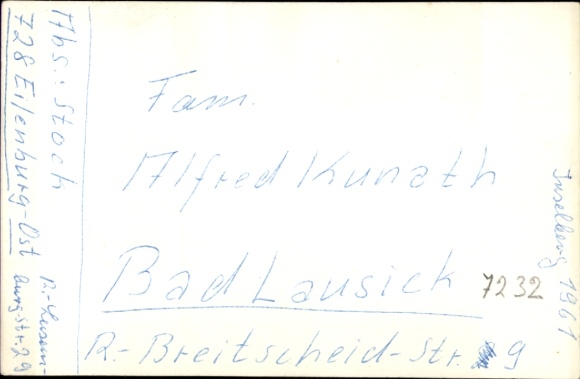 Abs.: Stoch
728 Eilenburg-Ost
R.-Luxem-
burg-Str. 29
Fam.
Alfred Kunath
Bad Lausick 7232
R.-Breitscheid-Str. 9
Inselberg 1961